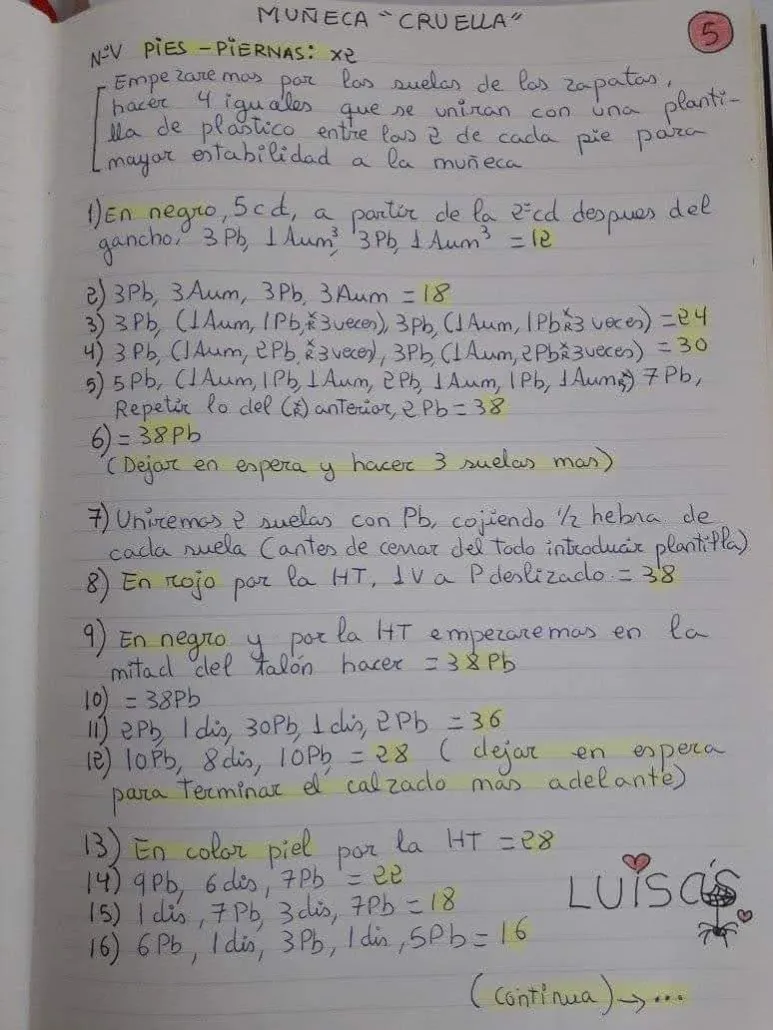 MUÑECA "CRUELLA"
5
NºV PIES - PIERNAS: x2
Empezaremos por las suelas de los zapatos,
hacer 4 iguales que se uniran con una planti-
lla de plástico entre las 2 de cada pie para
mayor estabilidad a la muñeca
1) En negro, 5cd, a partir de la 2ªcd despues del
gancho, 3Pb, 1Aum³, 3Pb, 1Aum³ = 12
2) 3Pb, 3Aum, 3Pb, 3Aum = 18
3) 3Pb, (1Aum, 1Pb, x R 3veces), 3Pb, (1Aum, 1Pb x R 3 veces) = 24
4) 3Pb, (1Aum, 2Pb x R 3veces), 3Pb, (1Aum, 2Pb x R 3veces) = 30
5) 5Pb, (1Aum, 1Pb, 1Aum, 2Pb, 1Aum, 1Pb, 1Aum x R) 7Pb,
Repetir lo del (x R) anterior, 2Pb = 38
6) = 38Pb
(Dejar en espera y hacer 3 suelas mas)
7) Uniremos 2 suelas con Pb, cojiendo 1/2 hebra de
cada suela (antes de cerrar del todo introducir plantilla)
8) En rojo por la HT, 1V a P deslizado = 38
9) En negro y por la HT empezaremos en la
mitad del talón hacer = 38Pb
10) = 38Pb
11) 2Pb, 1dis, 30Pb, 1dis, 2Pb = 36
12) 10Pb, 8dis, 10Pb = 28 (dejar en espera
para terminar el calzado mas adelante)
13) En color piel por la HT = 28
14) 9Pb, 6dis, 7Pb = 22
15) 1dis, 7Pb, 3dis, 7Pb = 18
16) 6Pb, 1dis, 3Pb, 1dis, 5Pb = 16
LUISCÁS
(Continua) → ...